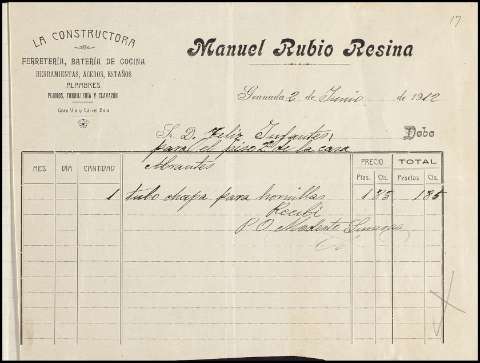 17
LA CONSTRUCTORA
FERRETERÍA, BATERÍA DE COCINA
HERRAMIENTAS, ACEROS, ESTAÑOS
ALAMBRES
PLOMOS, TORNILLERÍA Y CLAVAZÓN
Manuel Rubio Resina
Granada 2 de Junio de 1912
S. D. Feliz Infantes, Debe
para el piso 2º de la casa
Abrantes
MES DIA CANTIDAD PRECIO TOTAL
Ptas. Cts. Pesetas Cts.
1 tubo chapa para hornillas 1 85 1 85
Recibí
P. O. Modesto